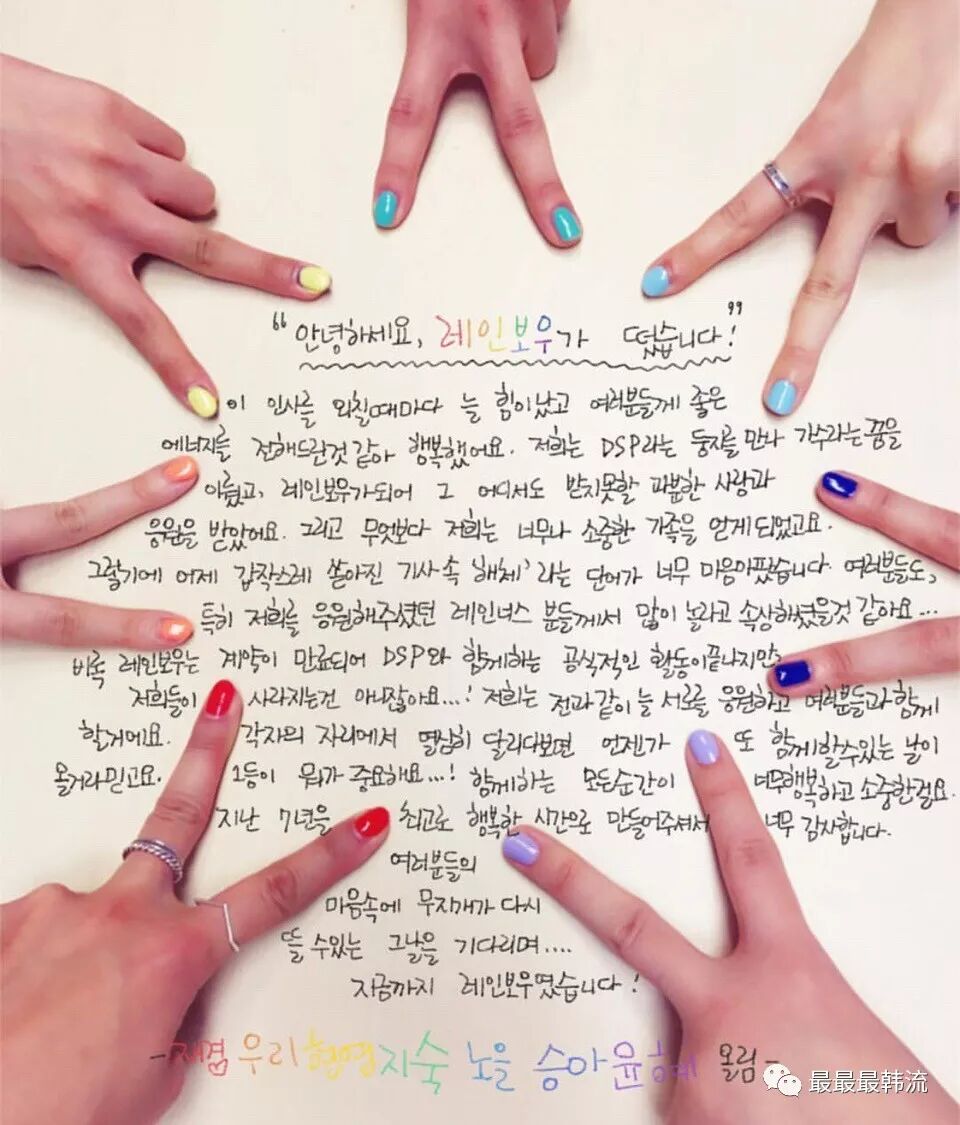 “안녕하세요, 레인보우가 떴습니다!”
이 인사를 외칠때마다 늘 힘이났고 여러분들께 좋은
에너지를 전해드린것 같아 행복했어요. 저희는 DSP라는 둥지를 만나 가수라는 꿈을
이뤘고, 레인보우가되어 그 어디서도 받지못할 과분한 사랑과
응원을 받았어요. 그리고 무엇보다 저희는 너무나 소중한 가족을 얻게되었고요.
그렇기에 어제 갑작스레 쏟아진 기사 속 '해체'라는 단어가 너무 마음아팠습니다. 여러분들도,
특히 저희를 응원해주셨던 레인너스 분들께서 많이 놀라고 속상해했을것 같아요...
비록 레인보우는 계약이 만료되어 DSP와 함께하는 공식적인 활동이끝나지만,
저희들이 사라지는건 아니잖아요...! 저희는 전과같이 늘 서로를 응원하고 여러분들과 함께
할거에요. 각자의 자리에서 열심히 달리다보면 언젠가 또 함께할수있는 날이
올거라믿고요. 1등이 뭐가 중요해요...! 함께하는 모든순간이 너무행복하고 소중한걸요.
지난 7년을 최고로 행복한 시간으로 만들어주셔서 너무 감사합니다.
여러분들의
마음속에 무지개가 다시
뜰 수있는 그날을 기다리며....
지금까지 레인보우였습니다!
-재경 우리 현영 지숙 노을 승아 윤혜 올림-
最最最韩流